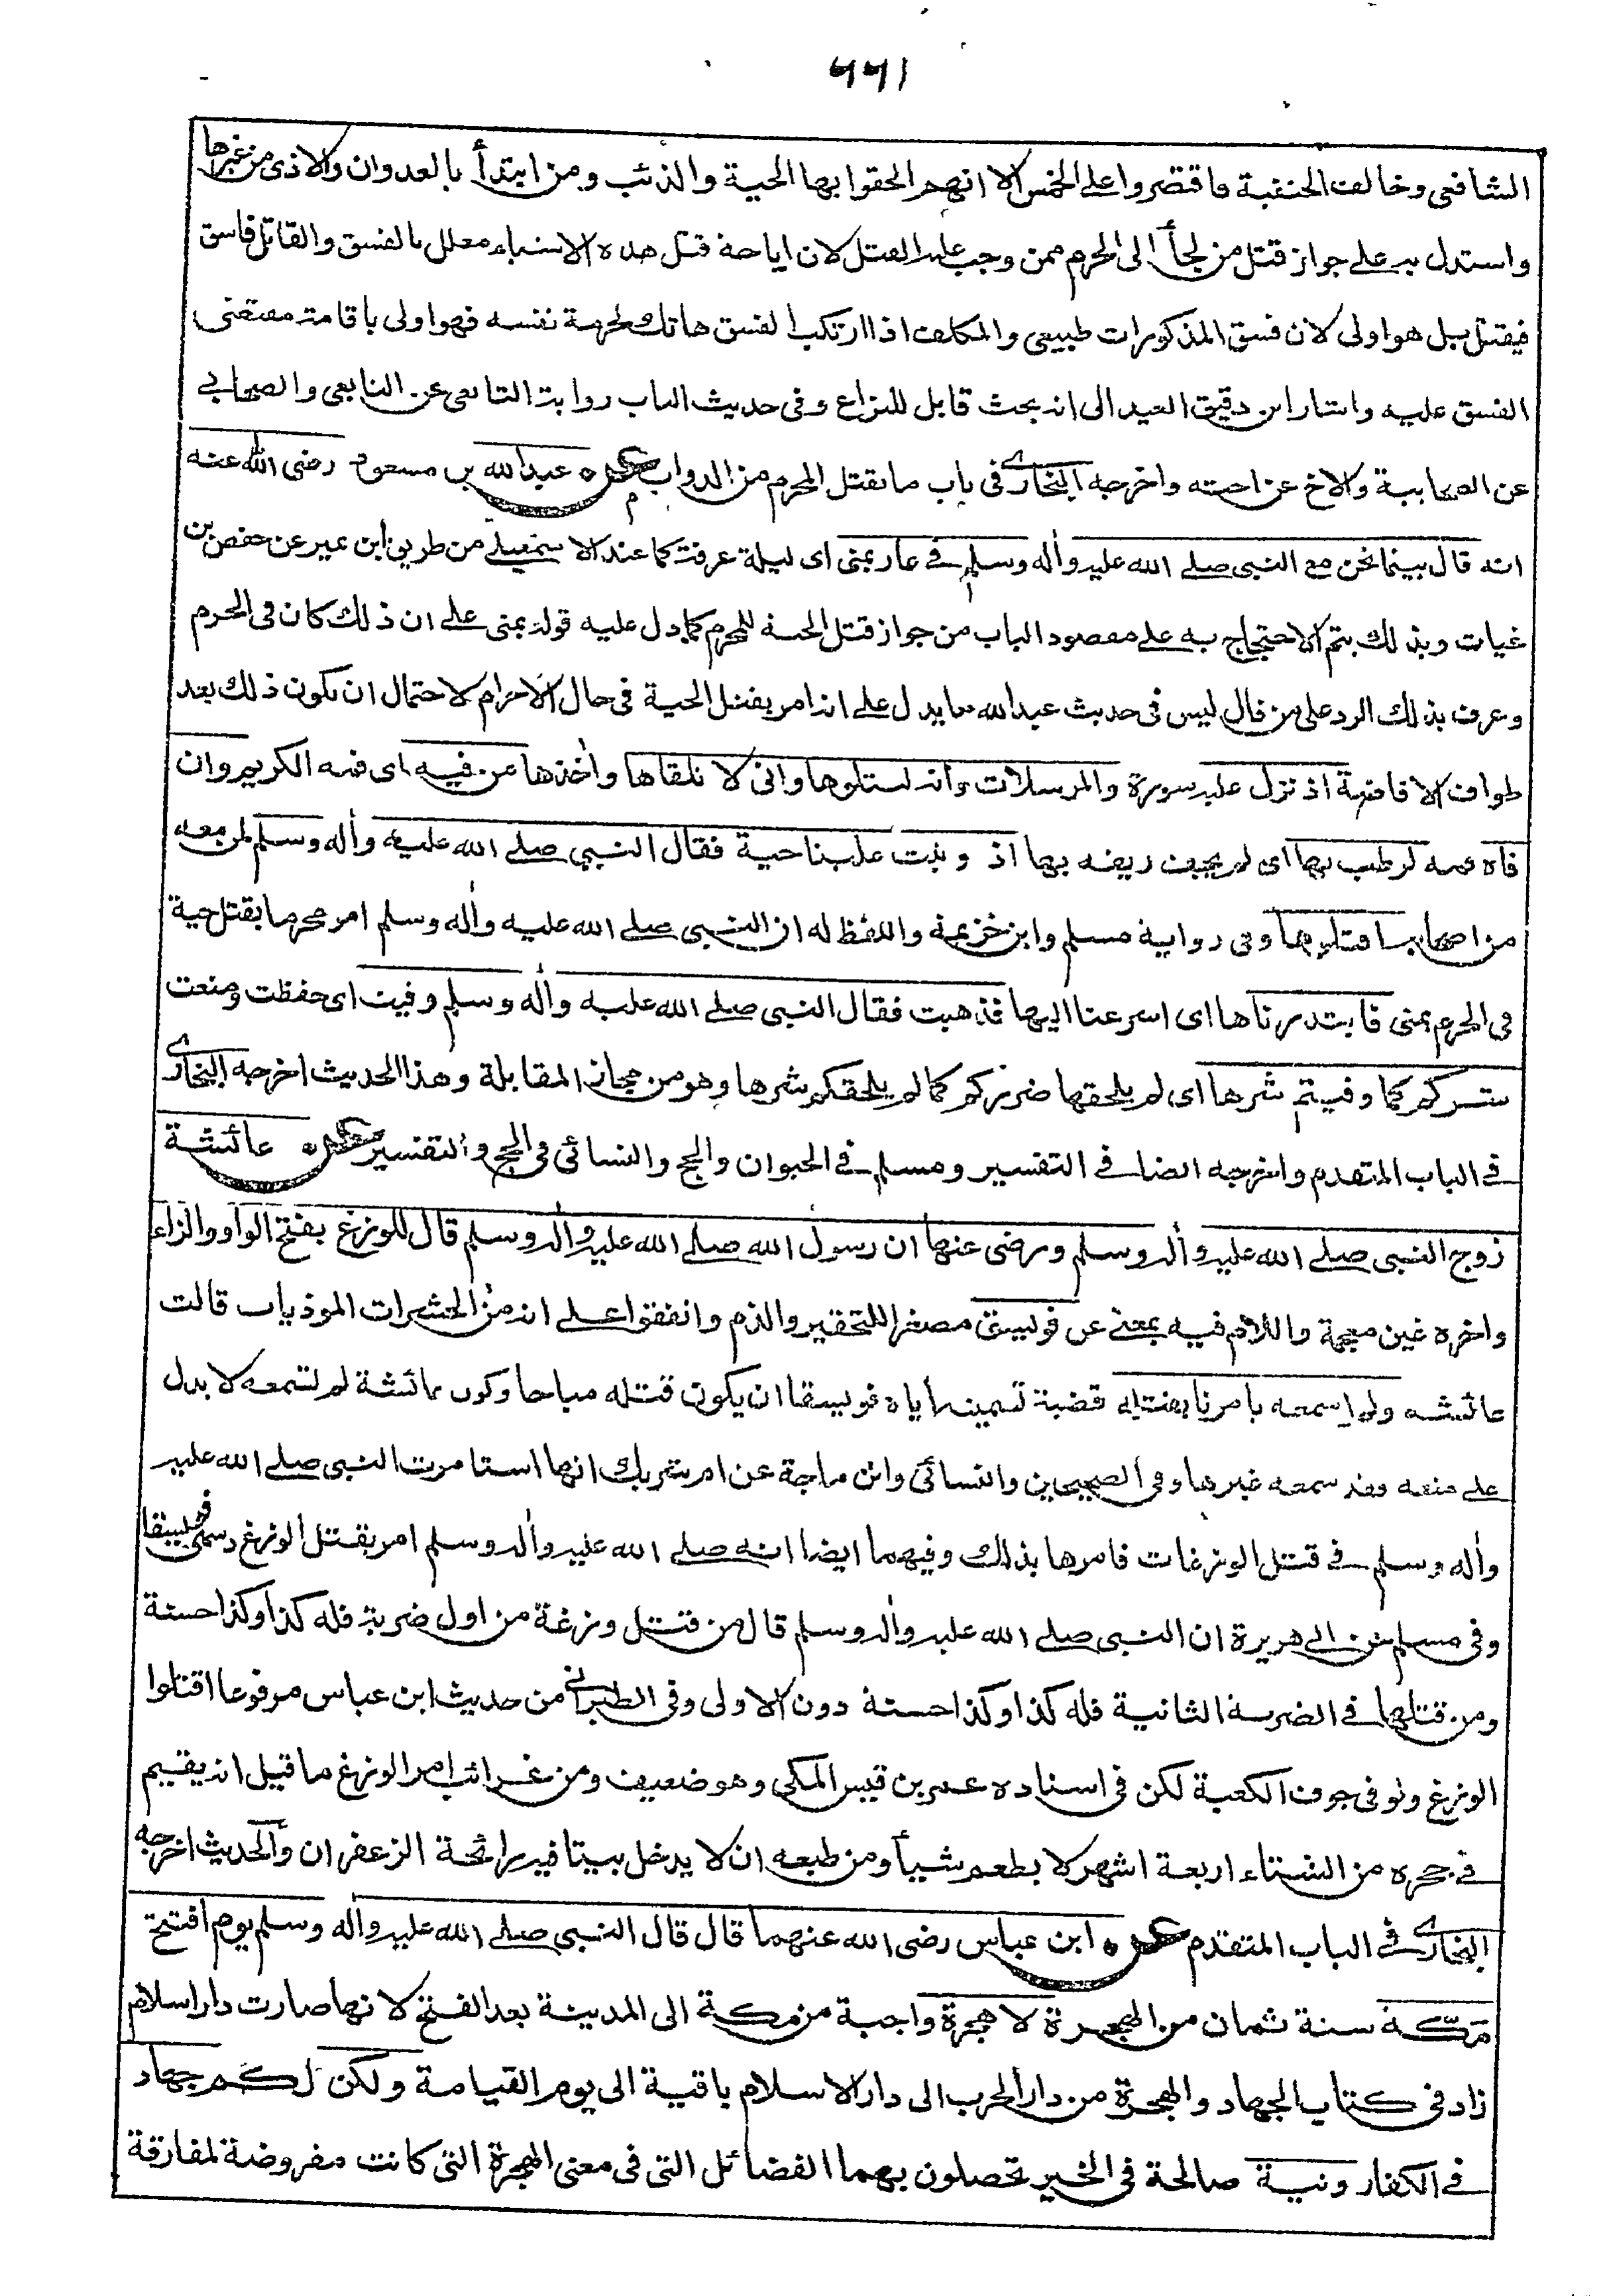 ٦٦١
الشافعى وخالف الحنفية فاقتصروا على الخمس الا انهم الحقوا بها الحية والذئب ومن ابتدأ بالعدوان والاذى من غيرها
واستدل به على جواز قتل من لجأ الى الحرم ممن وجب عليه القتل لان اباحة قتل هذه الاشياء معلل بالفسق والقاتل فاسق
فيقتل بل هو اولى لان فسق المذكورات طبيعى والمكلف اذا ارتكب الفسق هاتك لحرمة نفسه فهو اولى باقامة مقتضى
الفسق عليه واشار ابن دقيق العيد الى انه بحث قابل للنزاع وفى حديث الباب رواية التابعى عن التابعى والصحابى
عن الصحابية والاخ عن اخته واخرجه البخارى فى باب ما يقتل المحرم من الدواب عن عبد الله بن مسعود رضى الله عنه
انه قال بينما نحن مع النبى صلى الله عليه وأله وسلم فى غار بمنى اى ليلة عرفة كما عند الاسمعيلى من طريق ابن نمير عن حفص بن
غياث وبذلك يتم الاحتجاج به على مقصود الباب من جواز قتل الحية للمحرم كما دل عليه قوله بمنى على ان ذلك كان فى الحرم
وعرف بذلك الرد على من قال ليس فى حديث عبد الله ما يدل على انه امر بقتل الحية فى حال الاحرام لاحتمال ان يكون ذلك بعد
طواف الافاضة اذ نزل عليه سورة والمرسلات وانه ليتلوها وانى لا تلقاها واخذها من فيه اى فمه الكريم وان
فاه فمه لرطب بها اى لم يجف ريقه بها اذ وثبت علينا حية فقال النبى صلى الله عليه وأله وسلم لمن معه
من اصحابه اقتلوها وفى رواية مسلم وابن خزيمة واللفظ له ان النبى صلى الله عليه وأله وسلم امر محرما بقتل حية
فى الحرم بمنى فابتدرناها اى اسرعنا اليها فذهبت فقال النبى صلى الله عليه وأله وسلم وقيت اى حفظت ومنعت
شركم كما وقيتم شرها اى لم يلحقها ضرركم كما لم يلحقكم شرها وهو من مجاز المقابلة وهذا الحديث اخرجه البخارى
فى الباب المتقدم واخرجه ايضا فى التفسير ومسلم فى الحيوان والحج والنسائى فى الحج والتفسير عن عائشة
زوج النبى صلى الله عليه وأله وسلم ورضى عنها ان رسول الله صلى الله عليه وأله وسلم قال للوزغ بفتح الواو والزاء
واخره غين معجمة واللام فيه بمعنى عن فويسق مصغرا للتحقير والذم واتفقوا على انه من الحشرات الموذيات قالت
عائشه ولم اسمعه يامرنا بقتله قضية تسميته أياه فويسقا ان يكون قتله مباحا وكون عائشة لم تسمعه لا يدل
على منعه وقد سمعه غيرها وفى الصحيحين والنسائى وابن ماجة عن ام شريك انها استامرت النبى صلى الله عليه
وأله وسلم فى قتل الوزغات فامرها بذلك وفيهما ايضا انه صلى الله عليه وأله وسلم امر بقتل الوزغ وسمى فويسقا
وفى مسلم عن ابى هريرة ان النبى صلى الله عليه وأله وسلم قال من قتل وزغة من اول ضربة فله كذا وكذا حسنة
ومن قتلها فى الضربة الثانية فله كذا وكذا حسنة دون الاولى وفى الطبرانى من حديث ابن عباس مرفوعا اقتلوا
الوزغ ولو فى جوف الكعبة لكن فى اسناده عمر بن قيس المكى وهو ضعيف ومن غرائب امر الوزغ ما قيل انه يقيم
فى جحره من الشتاء اربعة اشهر لا يطعم شيأ ومن طبعه ان لا يدخل بيتا فيه رائحة الزعفران والحديث اخرجه
البخارى فى الباب المتقدم عن ابن عباس رضى الله عنهما قال قال النبى صلى الله عليه وأله وسلم يوم افتتح
مكة سنة ثمان من الهجرة لا هجرة واجبة من مكة الى المدينة بعد الفتح لانها صارت دار اسلام
زاد فى كتاب الجهاد والهجرة من دار الحرب الى دار الاسلام باقية الى يوم القيامة ولكن لكم جهاد
فى الكفار ونية صالحة فى الخير تحصلون بهما الفضائل التى فى معنى الهجرة التى كانت مفروضة لمفارقة